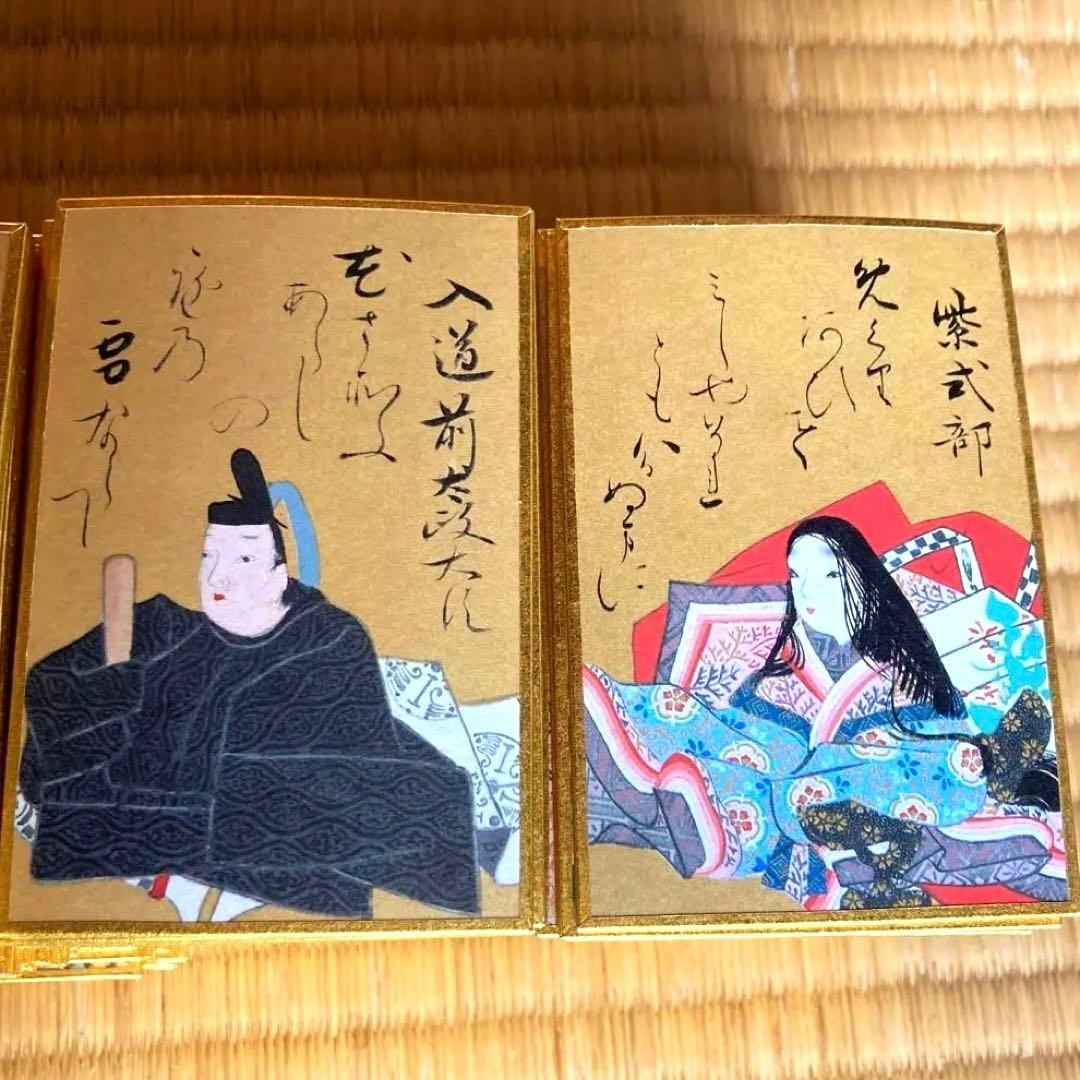 紫式部
めくり
あひて
みしやそれ
ともわかぬまに
入道前太政大臣
花さそふ
あらしの
庭乃
雪ならて